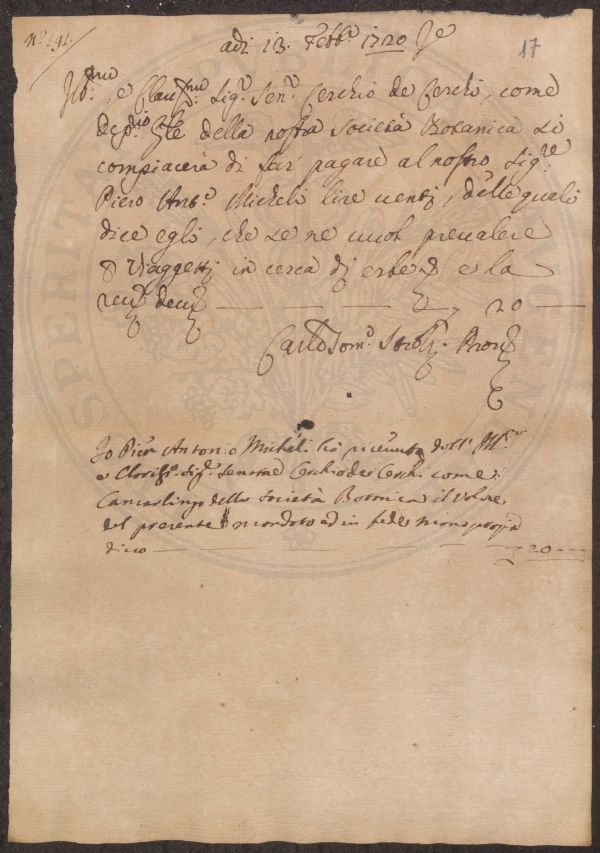 N.° 191.
adì 13. Febb.° 1720 17
Ill.mo, e Clariss.mo Sig.r Sen.r Cerchio de Cerchi, come
della nostra Società Botanica si
compiacerà di far pagare al nostro Sig.re
Piero Ant.° Micheli lire uenti, delle quali
dice egli, che se ne uuol preualere
Viaggetti in cerca di erbe e la
20
Carlo Tom.° Strozzi
Io Pier Antonio Micheli ho riceuuto dall' Ill.mo
e Clariss.° Sig.r Senatore Cerchio de Cerchi come
Camarlingo della Società Botanica il Valore
del presente mandato ed in fede mano propria
dico 20
SPERITA